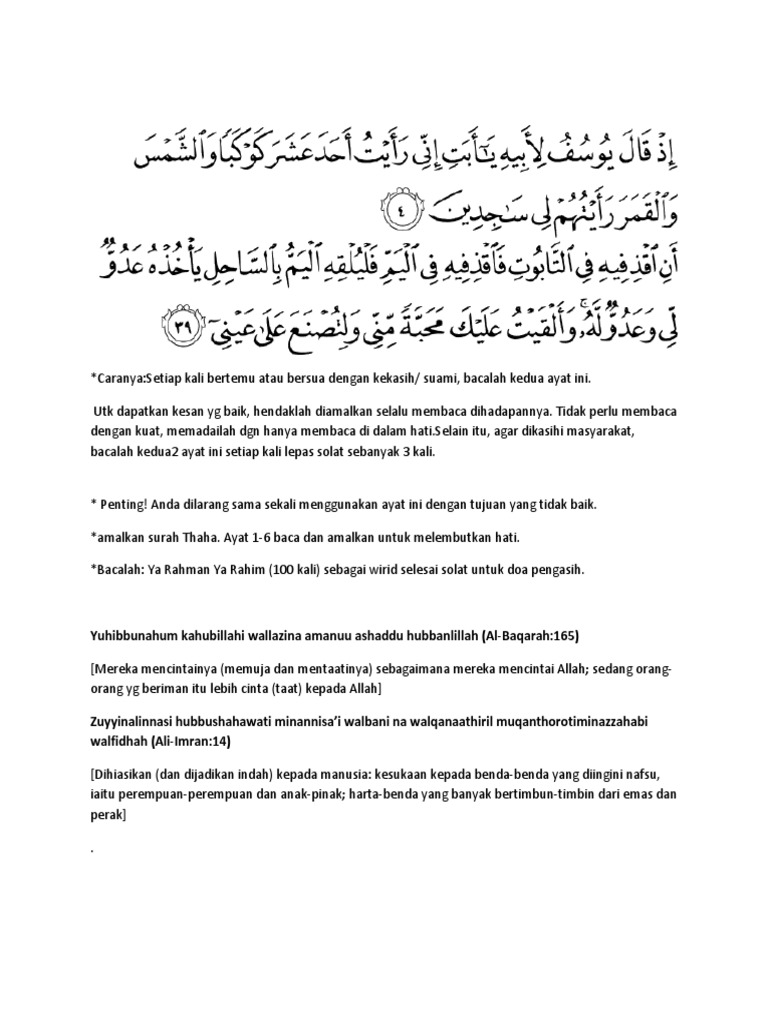 إِذْ قَالَ يُوسُفُ لِأَبِيهِ يَـٰٓأَبَتِ إِنِّى رَأَيْتُ أَحَدَ عَشَرَ كَوْكَبًا وَٱلشَّمْسَ
وَٱلْقَمَرَ رَأَيْتُهُمْ لِى سَـٰجِدِينَ ٤
أَنِ ٱقْذِفِيهِ فِى ٱلتَّابُوتِ فَٱقْذِفِيهِ فِى ٱلْيَمِّ فَلْيُلْقِهِ ٱلْيَمُّ بِٱلسَّاحِلِ يَأْخُذْهُ عَدُوٌّ
لِّى وَعَدُوٌّ لَّهُۥ ۚ وَأَلْقَيْتُ عَلَيْكَ مَحَبَّةً مِّنِّى وَلِتُصْنَعَ عَلَىٰ عَيْنِىٓ ٣٩
*Caranya:Setiap kali bertemu atau bersua dengan kekasih/ suami, bacalah kedua ayat ini.
Utk dapatkan kesan yg baik, hendaklah diamalkan selalu membaca dihadapannya. Tidak perlu membaca
dengan kuat, memadailah dgn hanya membaca di dalam hati.Selain itu, agar dikasihi masyarakat,
bacalah kedua2 ayat ini setiap kali lepas solat sebanyak 3 kali.
* Penting! Anda dilarang sama sekali menggunakan ayat ini dengan tujuan yang tidak baik.
*amalkan surah Thaha. Ayat 1-6 baca dan amalkan untuk melembutkan hati.
*Bacalah: Ya Rahman Ya Rahim (100 kali) sebagai wirid selesai solat untuk doa pengasih.
Yuhibbunahum kahubillahi wallazina amanuu ashaddu hubbanlillah (Al-Baqarah:165)
[Mereka mencintainya (memuja dan mentaatinya) sebagaimana mereka mencintai Allah; sedang orang-
orang yg beriman itu lebih cinta (taat) kepada Allah]
Zuyyinalinnasi hubbushahawati minannisa’i walbani na walqanaathiril muqanthorotiminazzahabi
walfidhah (Ali-Imran:14)
[Dihiasikan (dan dijadikan indah) kepada manusia: kesukaan kepada benda-benda yang diingini nafsu,
iaitu perempuan-perempuan dan anak-pinak; harta-benda yang banyak bertimbun-timbin dari emas dan
perak]
.